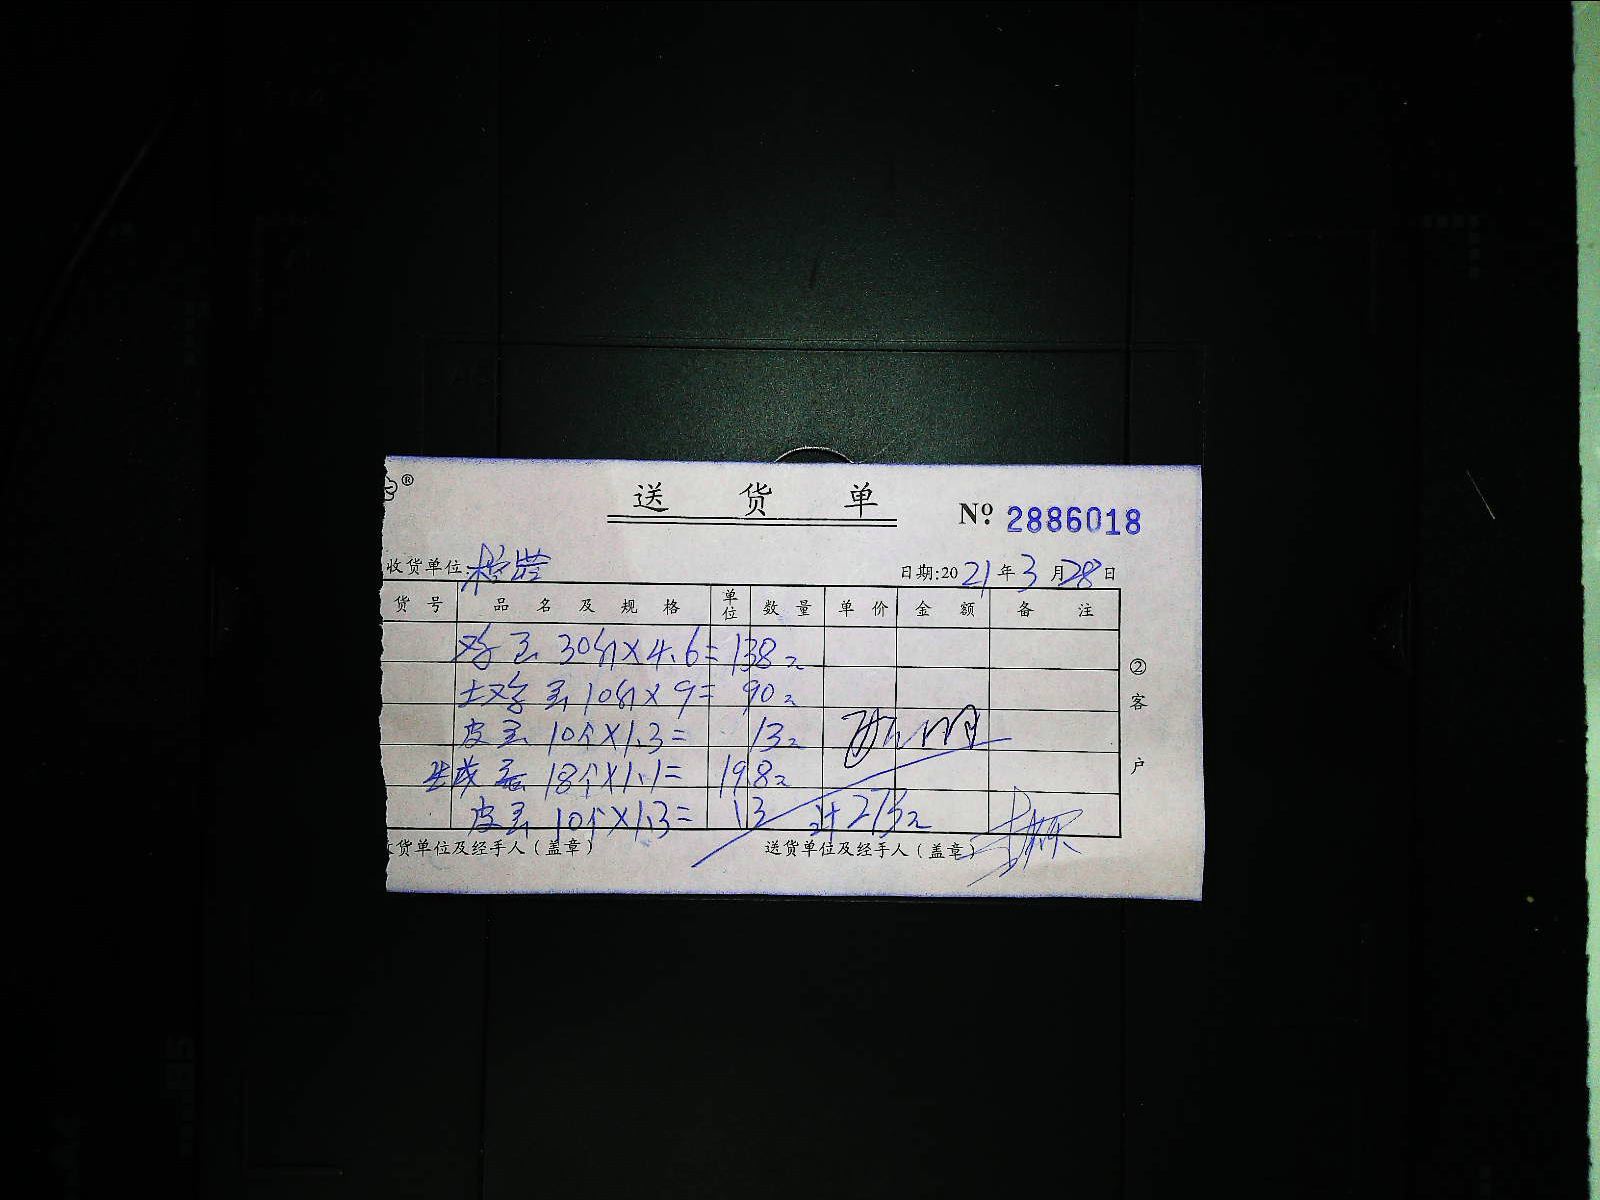 ®
送货单
№ 2886018
收货单位: 日期:2021年3月28日
货号 品名及规格 单位 数量 单价 金额 备注
鸡蛋 30个×4.6=138元
土鸡蛋 10个×9=90元
皮蛋 10个×1.3=13元
生咸蛋 18个×1.1=19.8元
皮蛋 10个×1.3=13 计273元
货单位及经手人(盖章) 送货单位及经手人(盖章)
②客户